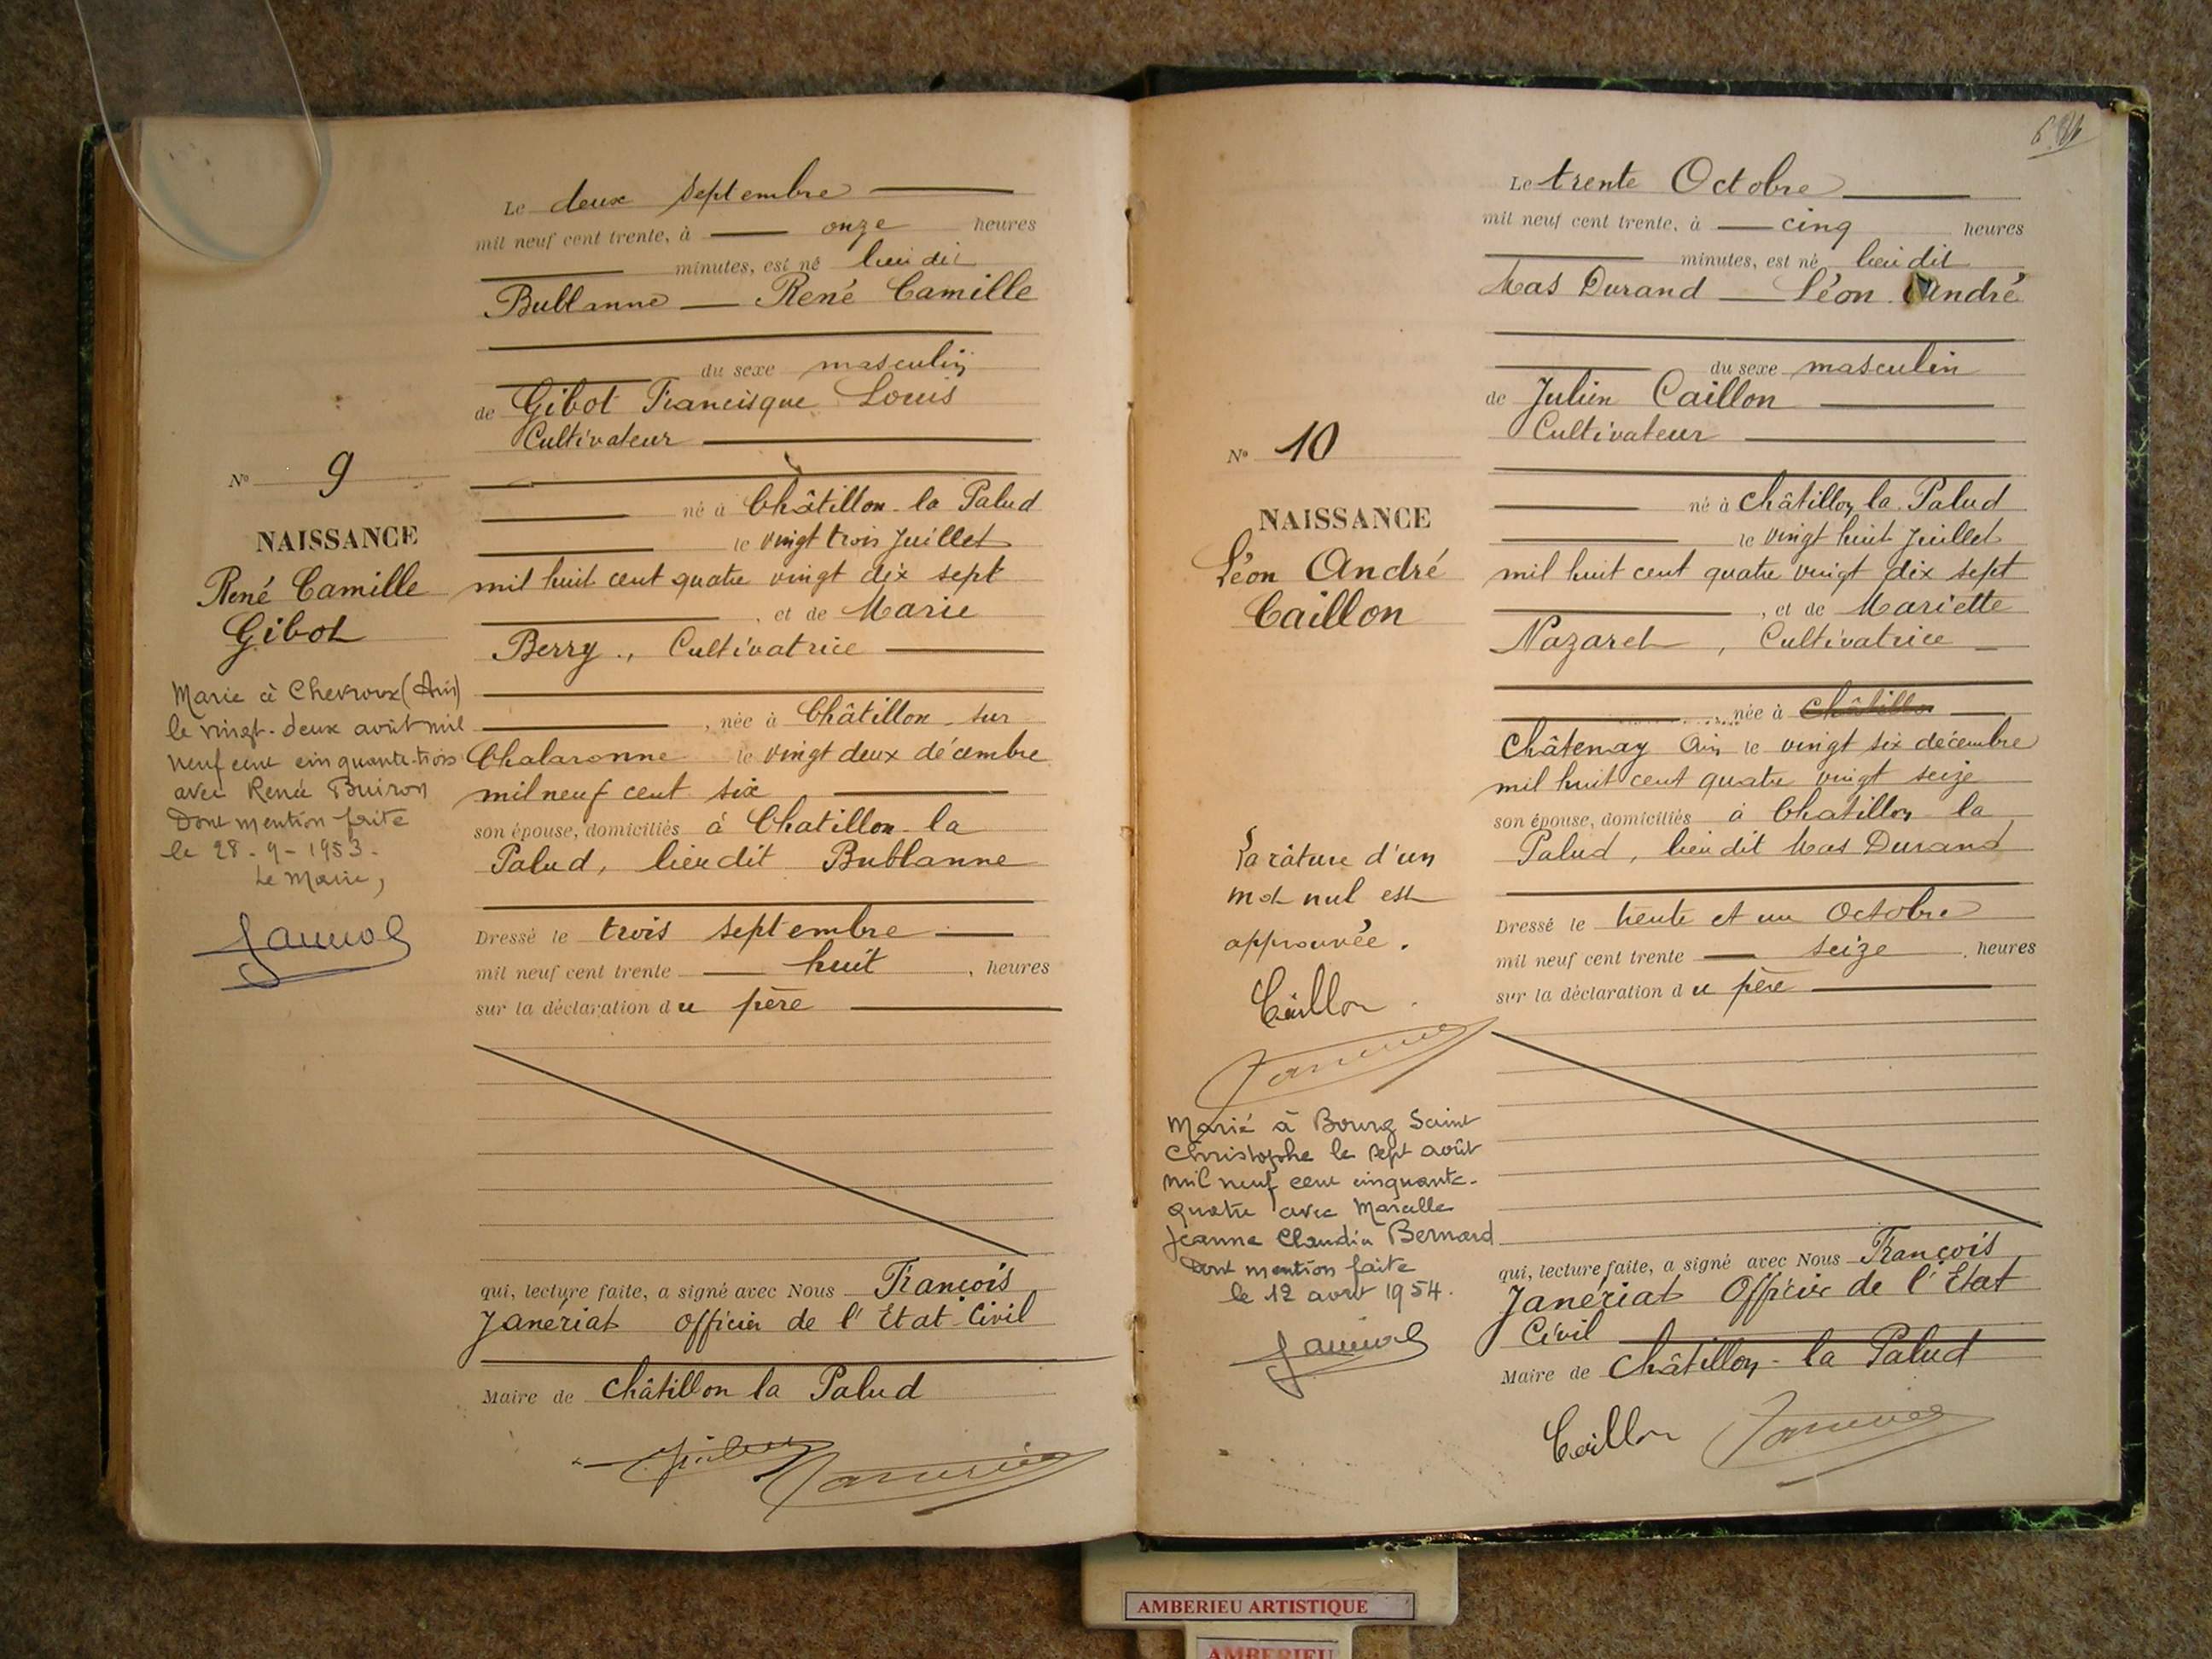 Le deux septembre
mil neuf cent trente, à onze heures
minutes, est né lieu dit
Bublanne René Camille
du sexe masculin
de Gibot Francisque Louis
Cultivateur
né à Châtillon-la Palud
le vingt trois Juillet
mil huit cent quatre vingt dix sept
, et de Marie
Berry, Cultivatrice
, née à Châtillon-sur
Chalaronne le vingt deux décembre
mil neuf cent six
son épouse, domiciliés à Chatillon-la
Palud, lieu dit Bublanne
Dressé le trois septembre
mil neuf cent trente huit, heures
sur la déclaration du père
qui, lecture faite, a signé avec Nous François
Janériat officier de l'Etat-Civil
Maire de Châtillon la Palud
N° 9
NAISSANCE
René Camille
Gibot
Marié à Chevroux (Ain)
le vingt-deux août mil
neuf cent cinquante-trois
avec Renée Buiron
Dont mention faite
le 28-9-1953.
Le Maire,
Le trente Octobre
mil neuf cent trente, à cinq heures
minutes, est né lieu dit
Mas Durand Léon André
du sexe masculin
de Julien Caillon
Cultivateur
né à Châtillon la Palud
le vingt huit Juillet
mil huit cent quatre vingt dix sept
, et de Mariette
Nazaret, Cultivatrice
née à Châtillon
Châtenay Ain le vingt six décembre
mil huit cent quatre vingt seize
son épouse, domiciliés à Chatillon la
Palud, lieu dit Mas Durand
Dressé le trente et un Octobre
mil neuf cent trente seize, heures
sur la déclaration du père
qui, lecture faite, a signé avec Nous François
Janériat Officier de l'Etat
Civil
Maire de Châtillon-la Palud
Caillon
N° 10
NAISSANCE
Léon André
Caillon
La râture d'un
mot nul est
approuvée.
Caillon
Marié à Bourg Saint
Christophe le sept août
mil neuf cent cinquante-
quatre avec Marcelle
Jeanne Claudia Bernard
dont mention faite
le 12 août 1954.
AMBERIEU ARTISTIQUE
AMBERIEU